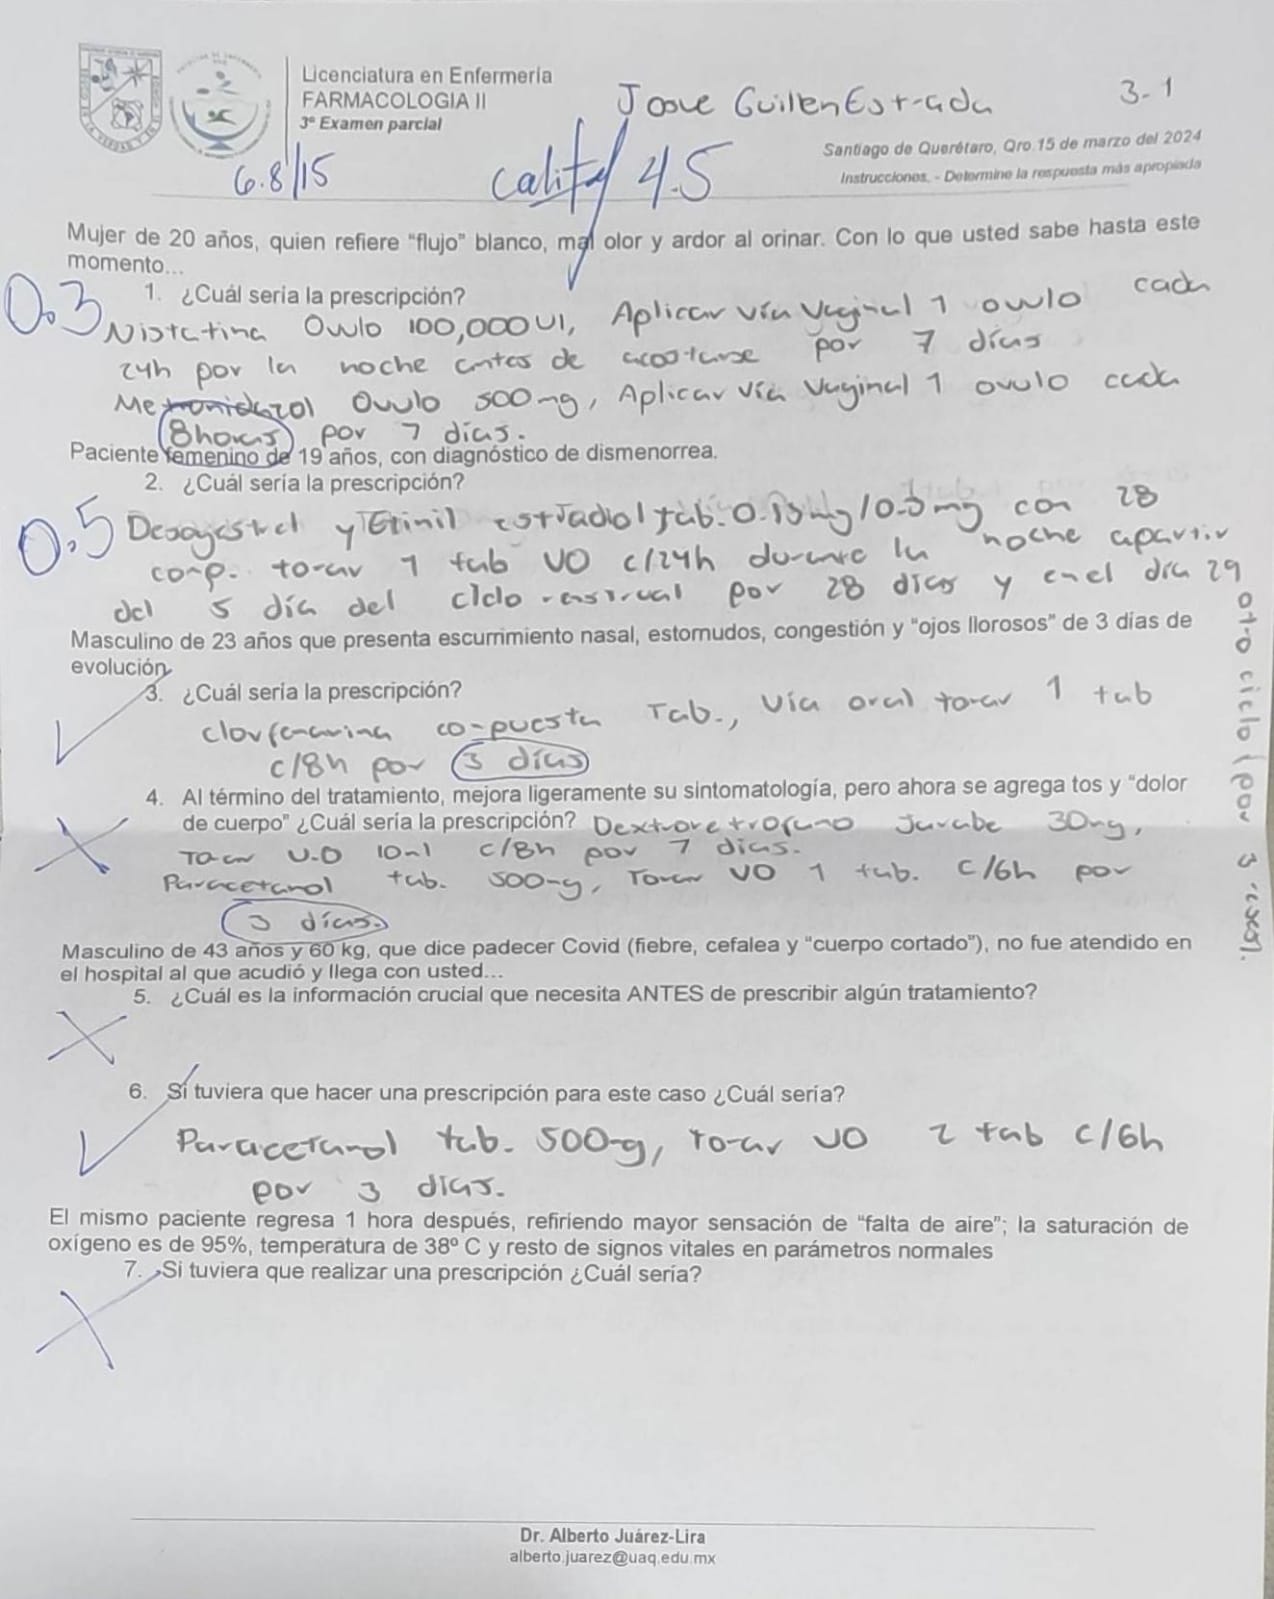 Licenciatura en Enfermería
FARMACOLOGIA II
3º Examen parcial
Josue Guillen Estrada
3-1
6.8/15
Calif 4.5
Santiago de Querétaro, Qro.15 de marzo del 2024
Instrucciones. - Determine la respuesta más apropiada
Mujer de 20 años, quien refiere “flujo” blanco, mal olor y ardor al orinar. Con lo que usted sabe hasta este
momento...
0.3
1. ¿Cuál sería la prescripción?
Nistatina Ovulo 100,000 UI, Aplicar vía Vaginal 1 ovulo cada
24h por la noche antes de acostarse por 7 días
Metronidazol Ovulo 500mg, Aplicar Vía Vaginal 1 ovulo cada
8horas por 7 días.
Paciente femenino de 19 años, con diagnóstico de dismenorrea.
2. ¿Cuál sería la prescripción?
0.5
Desogestrel y Etinil estradiol tab. 0.15mg/0.3mg con 28
comp. tomar 1 tab VO c/24h durante la noche apartir
del 5 día del ciclo menstrual por 28 días y en el día 29
otro ciclo (por 3 meses).
Masculino de 23 años que presenta escurrimiento nasal, estornudos, congestión y “ojos llorosos” de 3 días de
evolución.
3. ¿Cuál sería la prescripción?
clorfenamina compuesta Tab., Vía oral tomar 1 tab
c/8h por 3 días
4. Al término del tratamiento, mejora ligeramente su sintomatología, pero ahora se agrega tos y “dolor
de cuerpo” ¿Cuál sería la prescripción? Dextrometrofano Jarabe 30mg,
Tomar V.O 10ml c/8h por 7 días.
Paracetamol tab. 500mg, Tomar VO 1 tab. c/6h por
3 días.
Masculino de 43 años y 60 kg, que dice padecer Covid (fiebre, cefalea y “cuerpo cortado”), no fue atendido en
el hospital al que acudió y llega con usted...
5. ¿Cuál es la información crucial que necesita ANTES de prescribir algún tratamiento?
6. Si tuviera que hacer una prescripción para este caso ¿Cuál sería?
Paracetamol tab. 500mg, tomar VO 2 tab c/6h
por 3 días.
El mismo paciente regresa 1 hora después, refiriendo mayor sensación de “falta de aire”; la saturación de
oxígeno es de 95%, temperatura de 38º C y resto de signos vitales en parámetros normales
7. Si tuviera que realizar una prescripción ¿Cuál sería?
Dr. Alberto Juárez-Lira
alberto.juarez@uaq.edu.mx